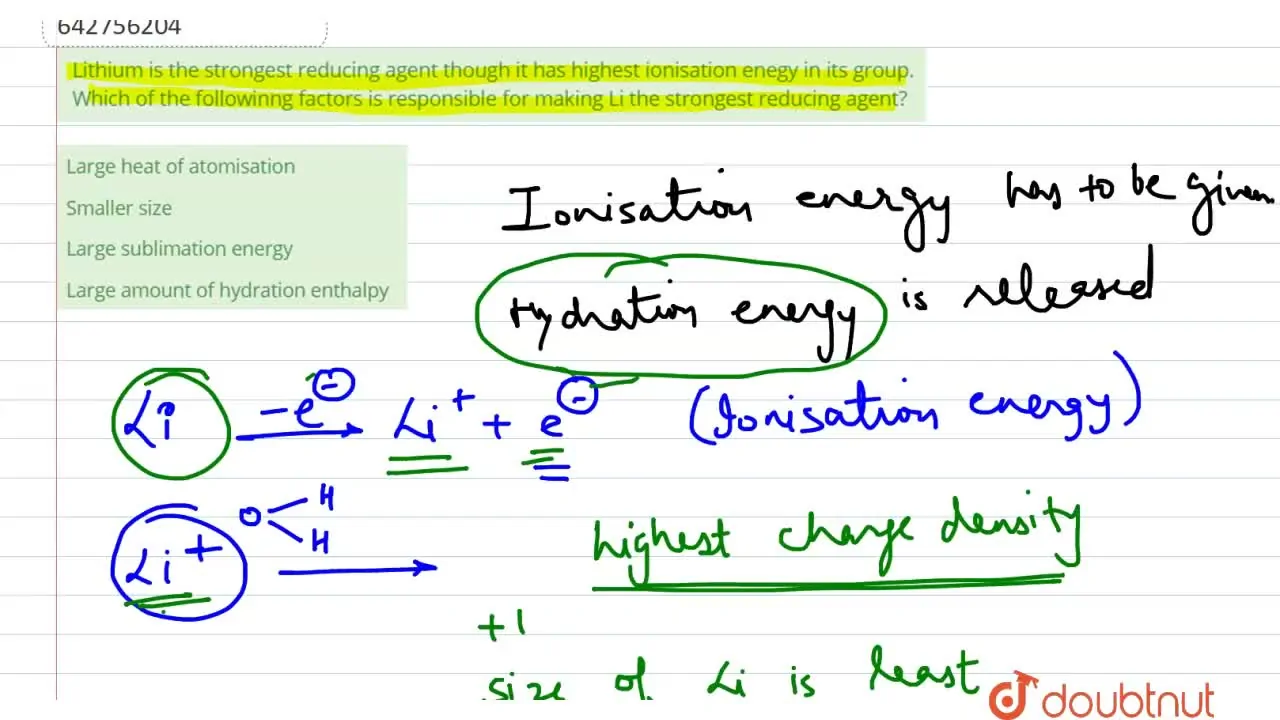 642756204
Lithium is the strongest reducing agent though it has highest ionisation enegy in its group.
Which of the followinng factors is responsible for making Li the strongest reducing agent?
Large heat of atomisation
Smaller size
Large sublimation energy
Large amount of hydration enthalpy
Ionisation energy has to be given.
Hydration energy is released
Li -e⊖ → Li⁺ + e⊖ (Ionisation energy)
Li⁺ O H H →
highest charge density
+1
size of Li is least
doubtnut